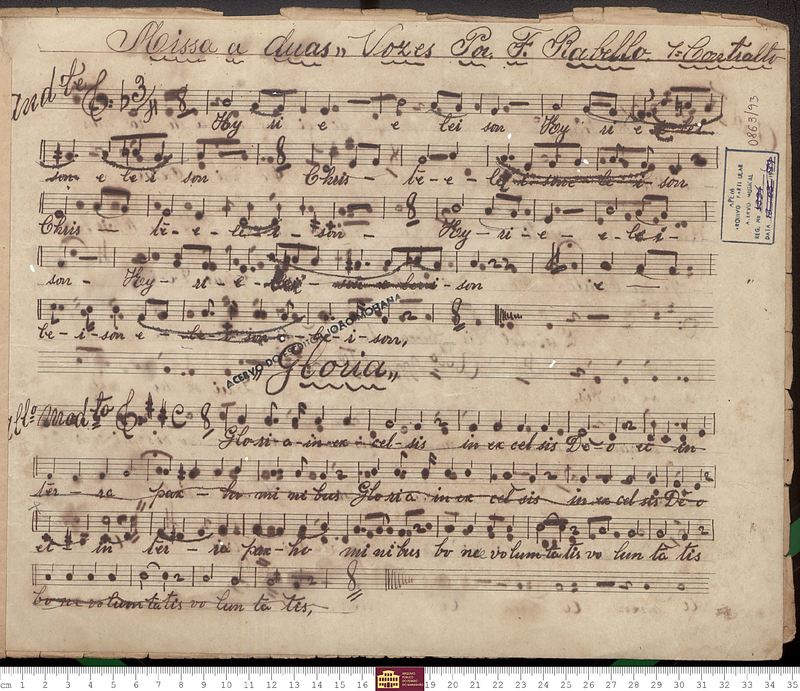 Missa a duas Vozes Por F. Rabello. 1º Contralto
And.te 3 8
Ky ri e e lei son Ky ri e e lei
son e le i son Chris - te - e - le i son
Chris - te - e - le i - son - Ky - ri - e - e le i
son - Ky - ri - e - i - son e -
le - i - son e - le - i - son,
"Gloria"
All.º mod.to C 8
Glori - a - in - ex - cel - sis in ex cel sis De - o et in
ter - ra pax - ho mi ni bus Glori a in ex cel sis in ex cel sis De o
et - in ter - ra pax - ho mi ni bus bo ne volum ta tis vo lun ta tis
bo ne volum ta tis vo lun ta tis,
0863/93
ARQUIVO PARTICULAR
ACERVO MUSICAL
REG. Nº
DATA
ACERVO DO JOÃO MOHANA
cm 1 2 3 4 5 6 7 8 9 10 11 12 13 14 15 16 19 20 21 22 23 24 25 26 27 28 29 30 31 32 33 34 35